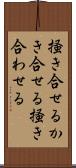 掻き合せるか
き合せる掻き
合わせる